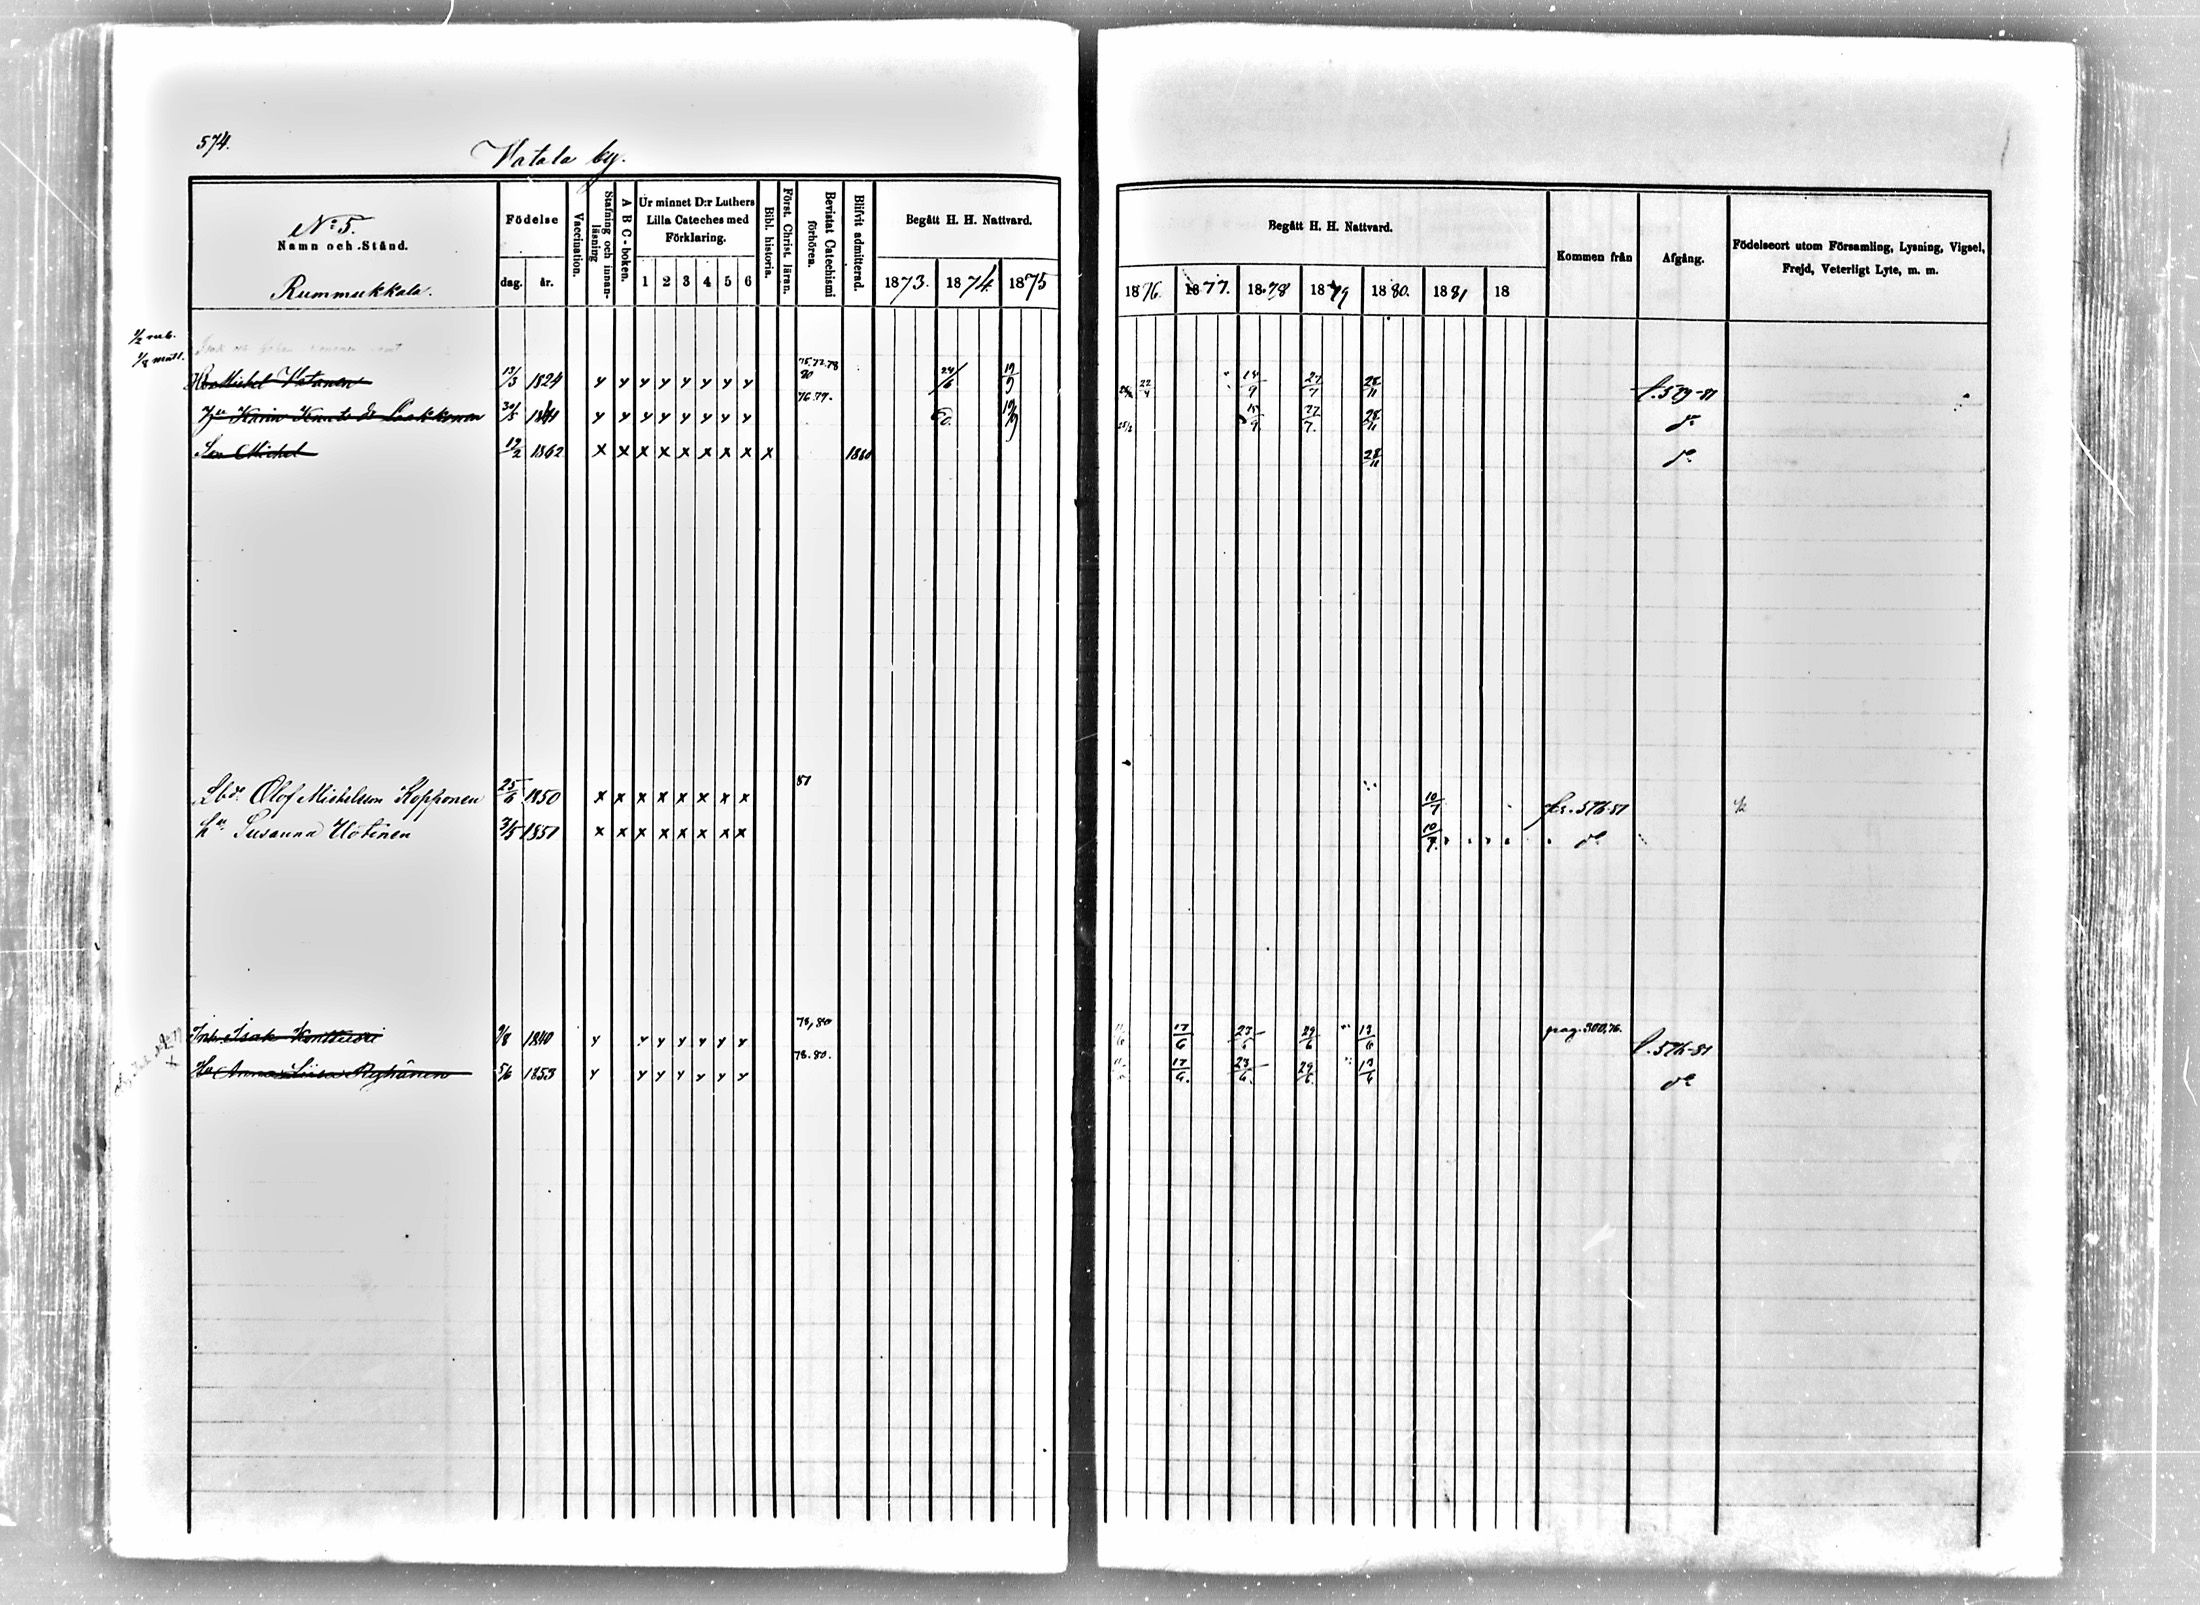 574.
Vatala by.
No 5.
Namn och Stånd.
Rummukkala.
Födelse
dag. år.
Vaccination.
Stafning och innan-läsning
A B C-boken.
Ur minnet D:r Luthers Lilla Cateches med Förklaring.
1 2 3 4 5 6
Bibl. historia.
Först. Christ. läran.
Bevistat Catechismi förhören.
Blifvit admitterad.
Begått H. H. Nattvard.
1873. 1874. 1875
Begått H. H. Nattvard.
1876. 1877. 1878 1879 1880. 1881 18
Kommen från
Afgång.
Födelseort utom Församling, Lysning, Vigsel, Frejd, Veterligt Lyte, m. m.
1/2 rub.
1/2 mntl.
Michel Vatanen 13/3 1824 y y y y y y y y 75.77.78 80 24/6 19/9 22/4 14/9 27/7 28/11 f. 579-81
Karin 30/5 1841 y y y y y y y y 76.79. 27/7. 28/11 do
Son Michel 19/2 1862 x x x x x x x x x 1880 28/11 do
Olof Michelsson Kopponen 25/6 1850 x x x x x x x x 81 10/7 576-81
hu Susanna 3/5 1851 x x x x x x x x 10/7. do
Inh. Isak Konttuori 9/8 1840 y y y y y y y 78, 80 17/6 23/6 29/6 13/6 pag. 300,76. f. 576-81
Hu Anna Liisa Ryhänen 5/6 1853 y y y y y y y 78. 80. 17/6. 23/6. 29/6. 13/6 do